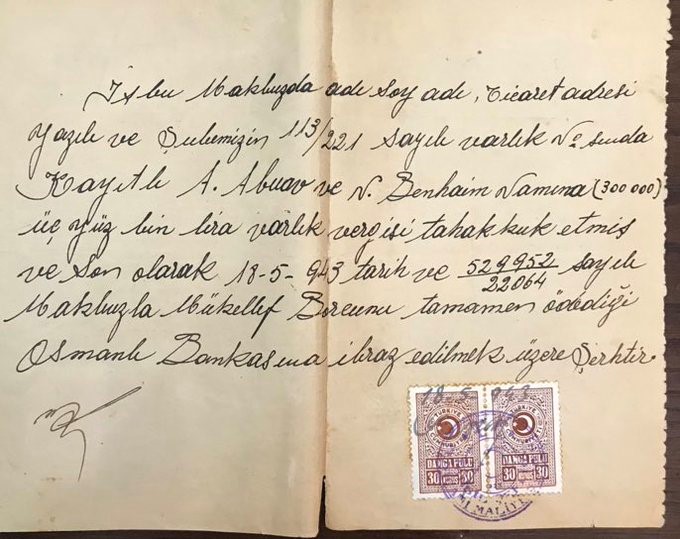 İşbu Makbuzda adı soy adı, Ticaret adresi
yazılı ve Şubemizin 113/221 sayılı varlık No sunda
Kayıtlı A. Abuav ve N. Benhaim Namına (300 000)
üç yüz bin lira varlık vergisi tahakkuk etmiş
ve Son olarak 18-5-943 tarih ve 529952/22064 sayılı
Makbuzla Mükellef Borcunu tamamen ödediği
Osmanlı Bankasına ibraz edilmek üzere Şerhtir
18 5 943
TÜRKİYE CUMHURİYETİ TÜRKİYE CUMHURİYETİ
DAMGA PULU DAMGA PULU
30 KURUŞ 30 30 KURUŞ 30
MALİYE